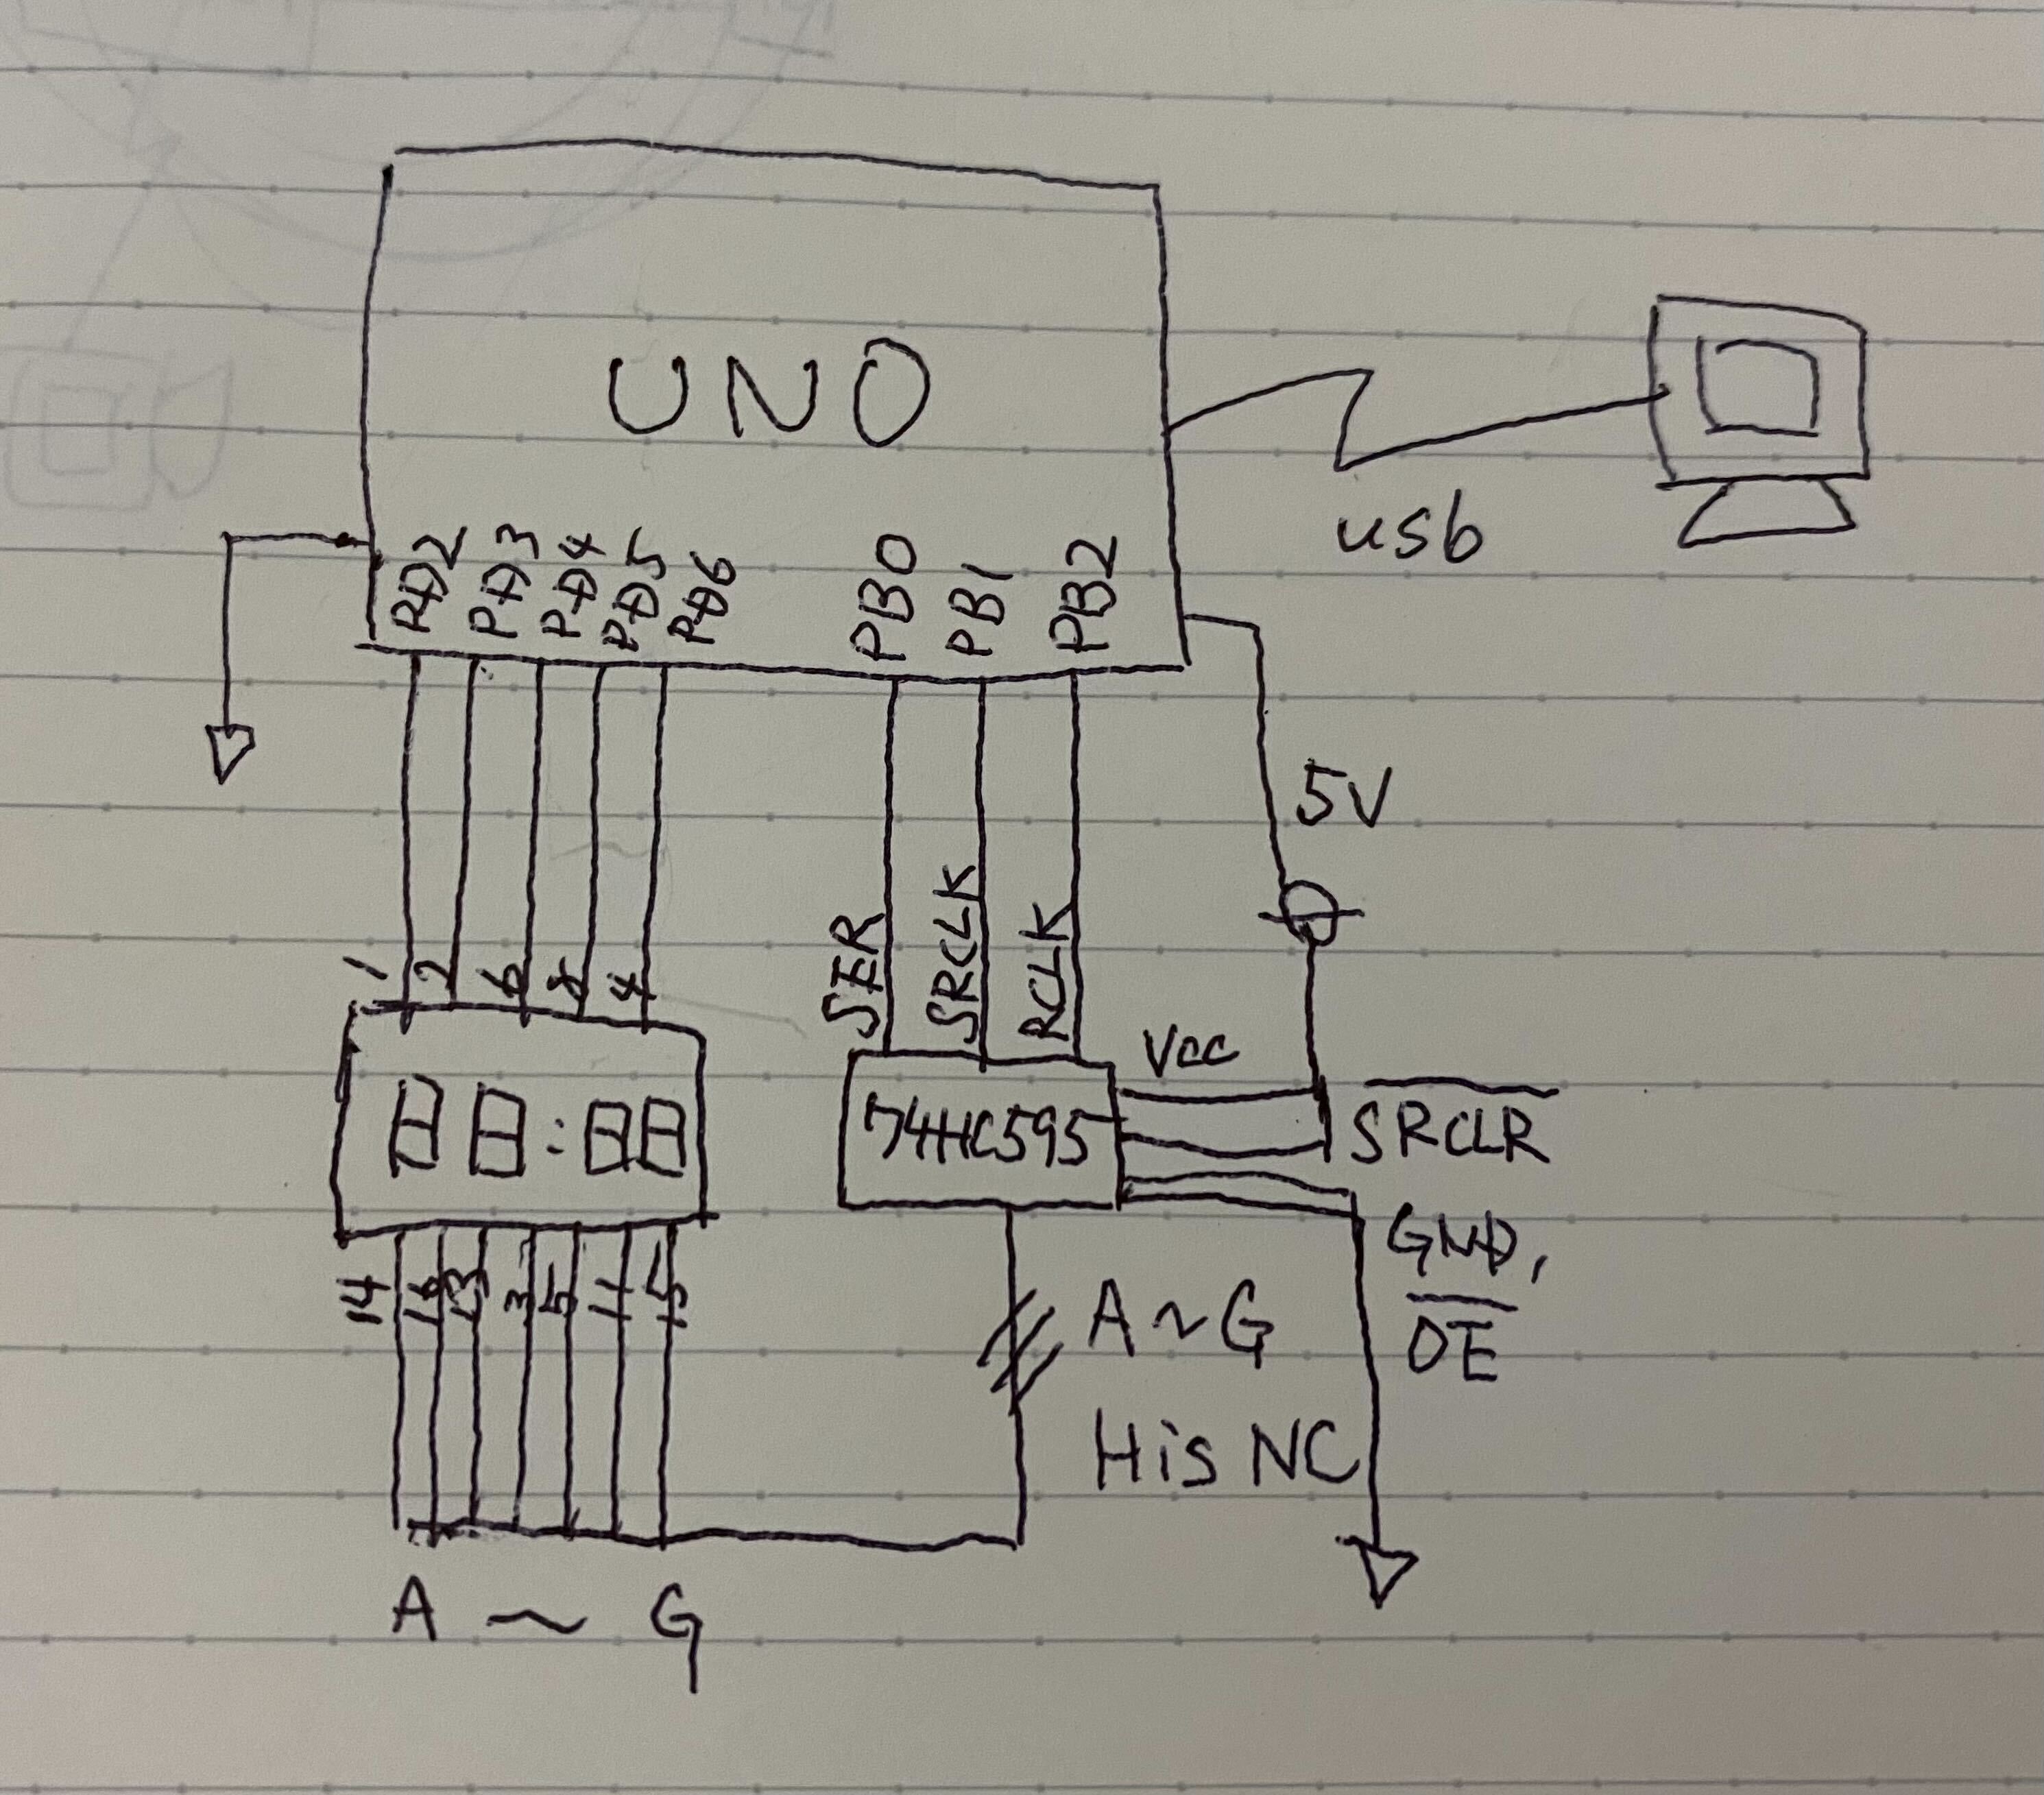 UNO
PD2 PD3 PD4 PD5 PD6 PB0 PB1 PB2
usb
5V
1 2 6 8 4
SER SRCLK RCLK
Vcc
88:88
74HC595
SRCLR
GND,
OE
14 16 13 3 5 11 15
A~G
H is NC
A ~ G